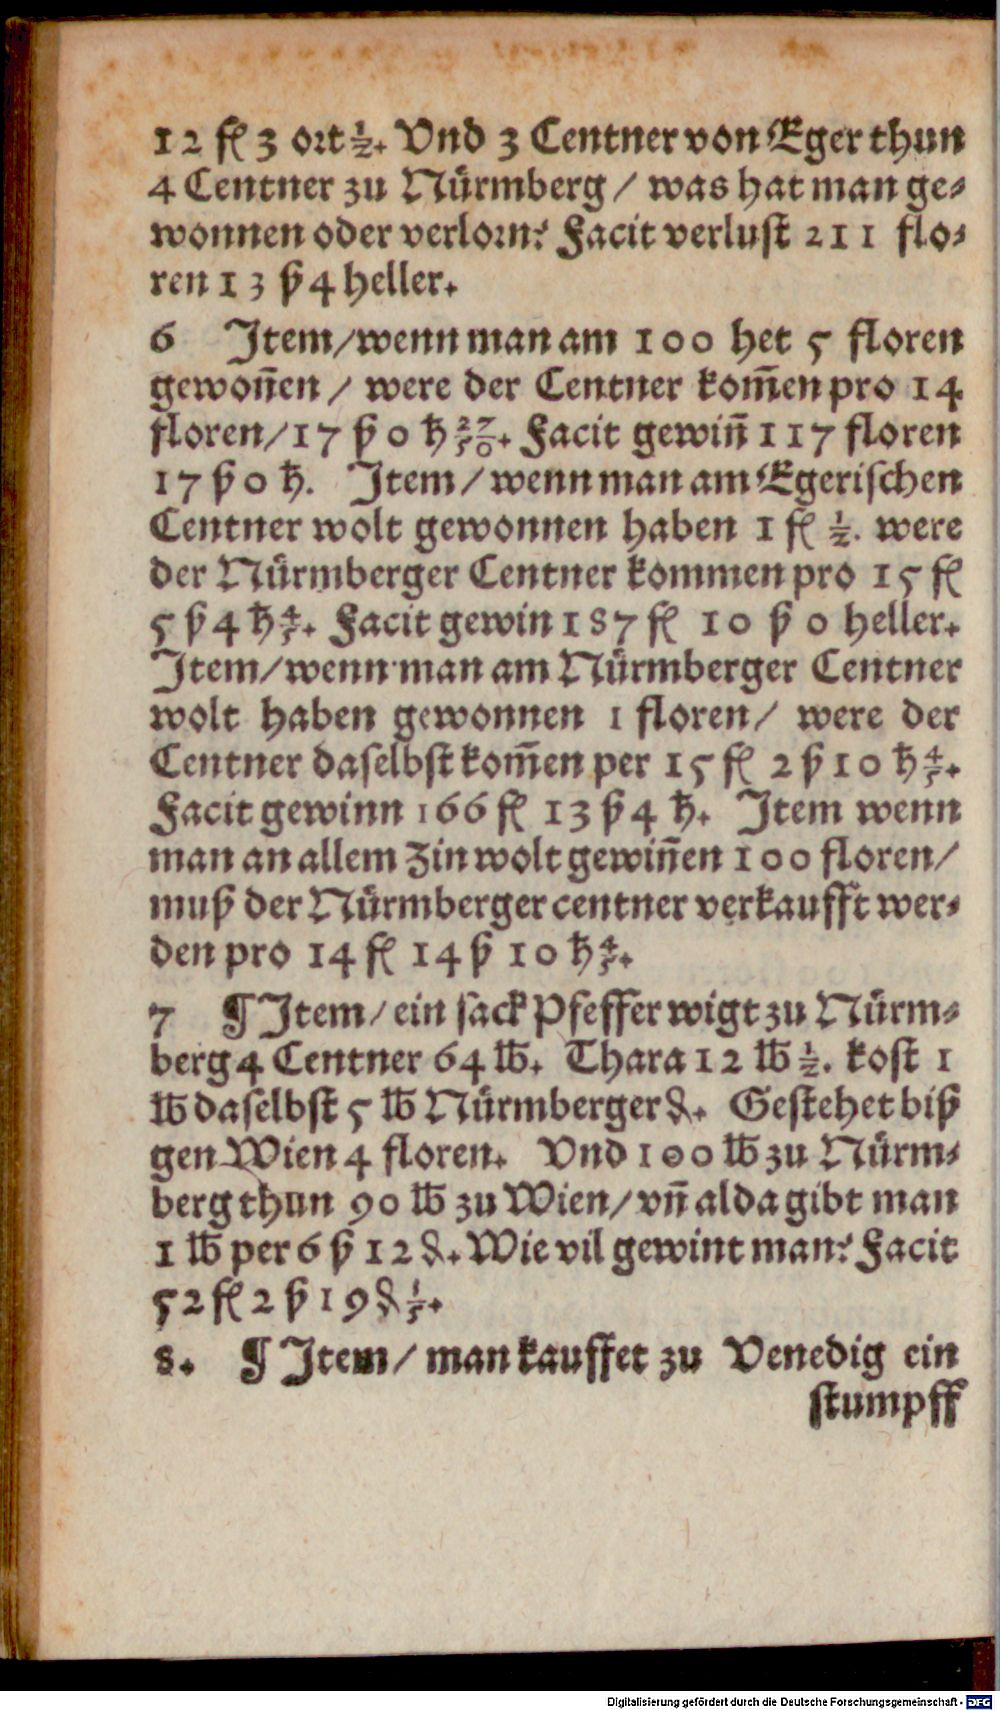 12 fl 3 ort ½. Vnd 3 Centner von Eger thun
4 Centner zu Nürmberg / was hat man ge⸗
wonnen oder verlorn? Facit verlust 211 flo⸗
ren 13 ß 4 heller.
6 Item/wenn man am 100 het 5 floren
gewoñen / were der Centner kom̃en pro 14
floren/17 ß 0 hͭ 27/50. Facit gewiñ 117 floren
17 ß 0 hͭ. Item / wenn man am Egerischen
Centner wolt gewonnen haben 1 fl ½. were
der Nürmberger Centner kommen pro 15 fl
5 ß 4 hͭ 4/5. Facit gewin 187 fl 10 ß 0 heller.
Item/wenn man am Nürmberger Centner
wolt haben gewonnen 1 floren/ were der
Centner daselbst kom̃en per 15 fl 2 ß 10 hͭ 4/5.
Facit gewinn 166 fl 13 ß 4 hͭ. Item wenn
man an allem Zin wolt gewiñen 100 floren/
muß der Nürmberger centner verkaufft wer⸗
den pro 14 fl 14 ß 10 hͭ 4/5.
7 ¶ Item/ein sack Pfeffer wigt zu Nürm⸗
berg 4 Centner 64 ℔. Thara 12 ℔ ½. kost 1
℔ daselbst 5 ℔ Nürmberger ₰. Gestehet biß
gen Wien 4 floren. Vnd 100 ℔ zu Nürm⸗
berg thun 90 ℔ zu Wien/vñ alda gibt man
1 ℔ per 6 ß 12 ₰. Wie vil gewint man? Facit
52 fl 2 ß 19 ₰ 1/5.
8. ¶ Item/ man kauffet zu Venedig ein
stumpff
Digitalisierung gefördert durch die Deutsche Forschungsgemeinschaft - DFG